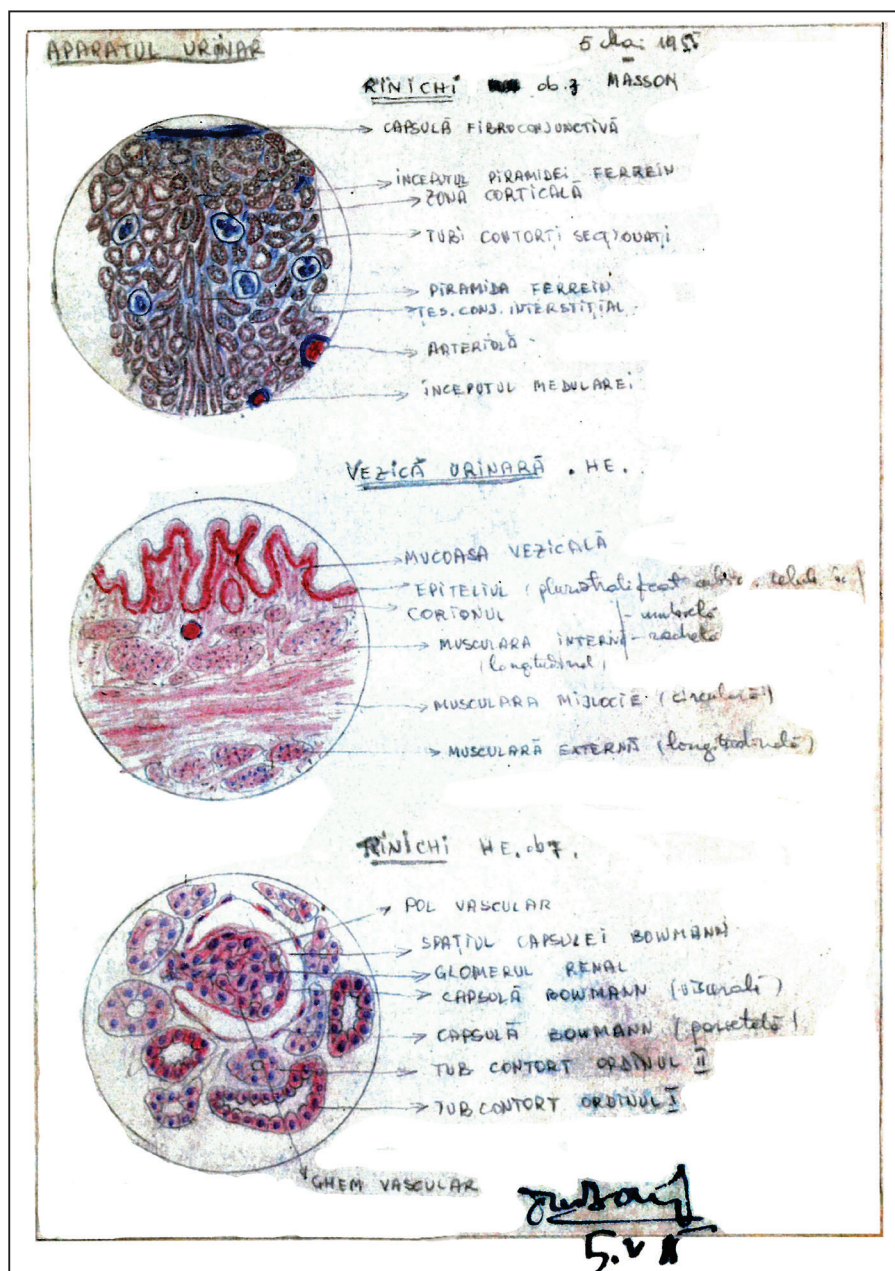 APARATUL URINAR
5 Mai 19
RINICHI ob. 7 MASSON
CAPSULĂ FIBROCONJUNCTIVĂ
ÎNCEPUTUL PIRAMIDEI FERREIN
ZONĂ CORTICALĂ
TUBI CONTORȚI SECȚIONAȚI
PIRAMIDA FERREIN
ȚES. CONJ. INTERSTIȚIAL
ARTERIOLĂ
ÎNCEPUTUL MEDULAREI
VEZICĂ URINARĂ . HE.
MUCOASA VEZICALĂ
EPITELIUL (pluristratificat
CORIONUL - umbrelă
MUSCULARA INTERNĂ - rachetă
(longitudinal)
MUSCULARA MIJLOCIE
MUSCULARĂ EXTERNĂ (longitudinală)
RINICHI HE. ob 7.
POL VASCULAR
SPAȚIUL CAPSULEI BOWMANN
GLOMERUL RENAL
CAPSULĂ BOWMANN (viscerală)
CAPSULĂ BOWMANN (parietală)
TUB CONTORT ORDINUL II
TUB CONTORT ORDINUL I
GHEM VASCULAR
5.V